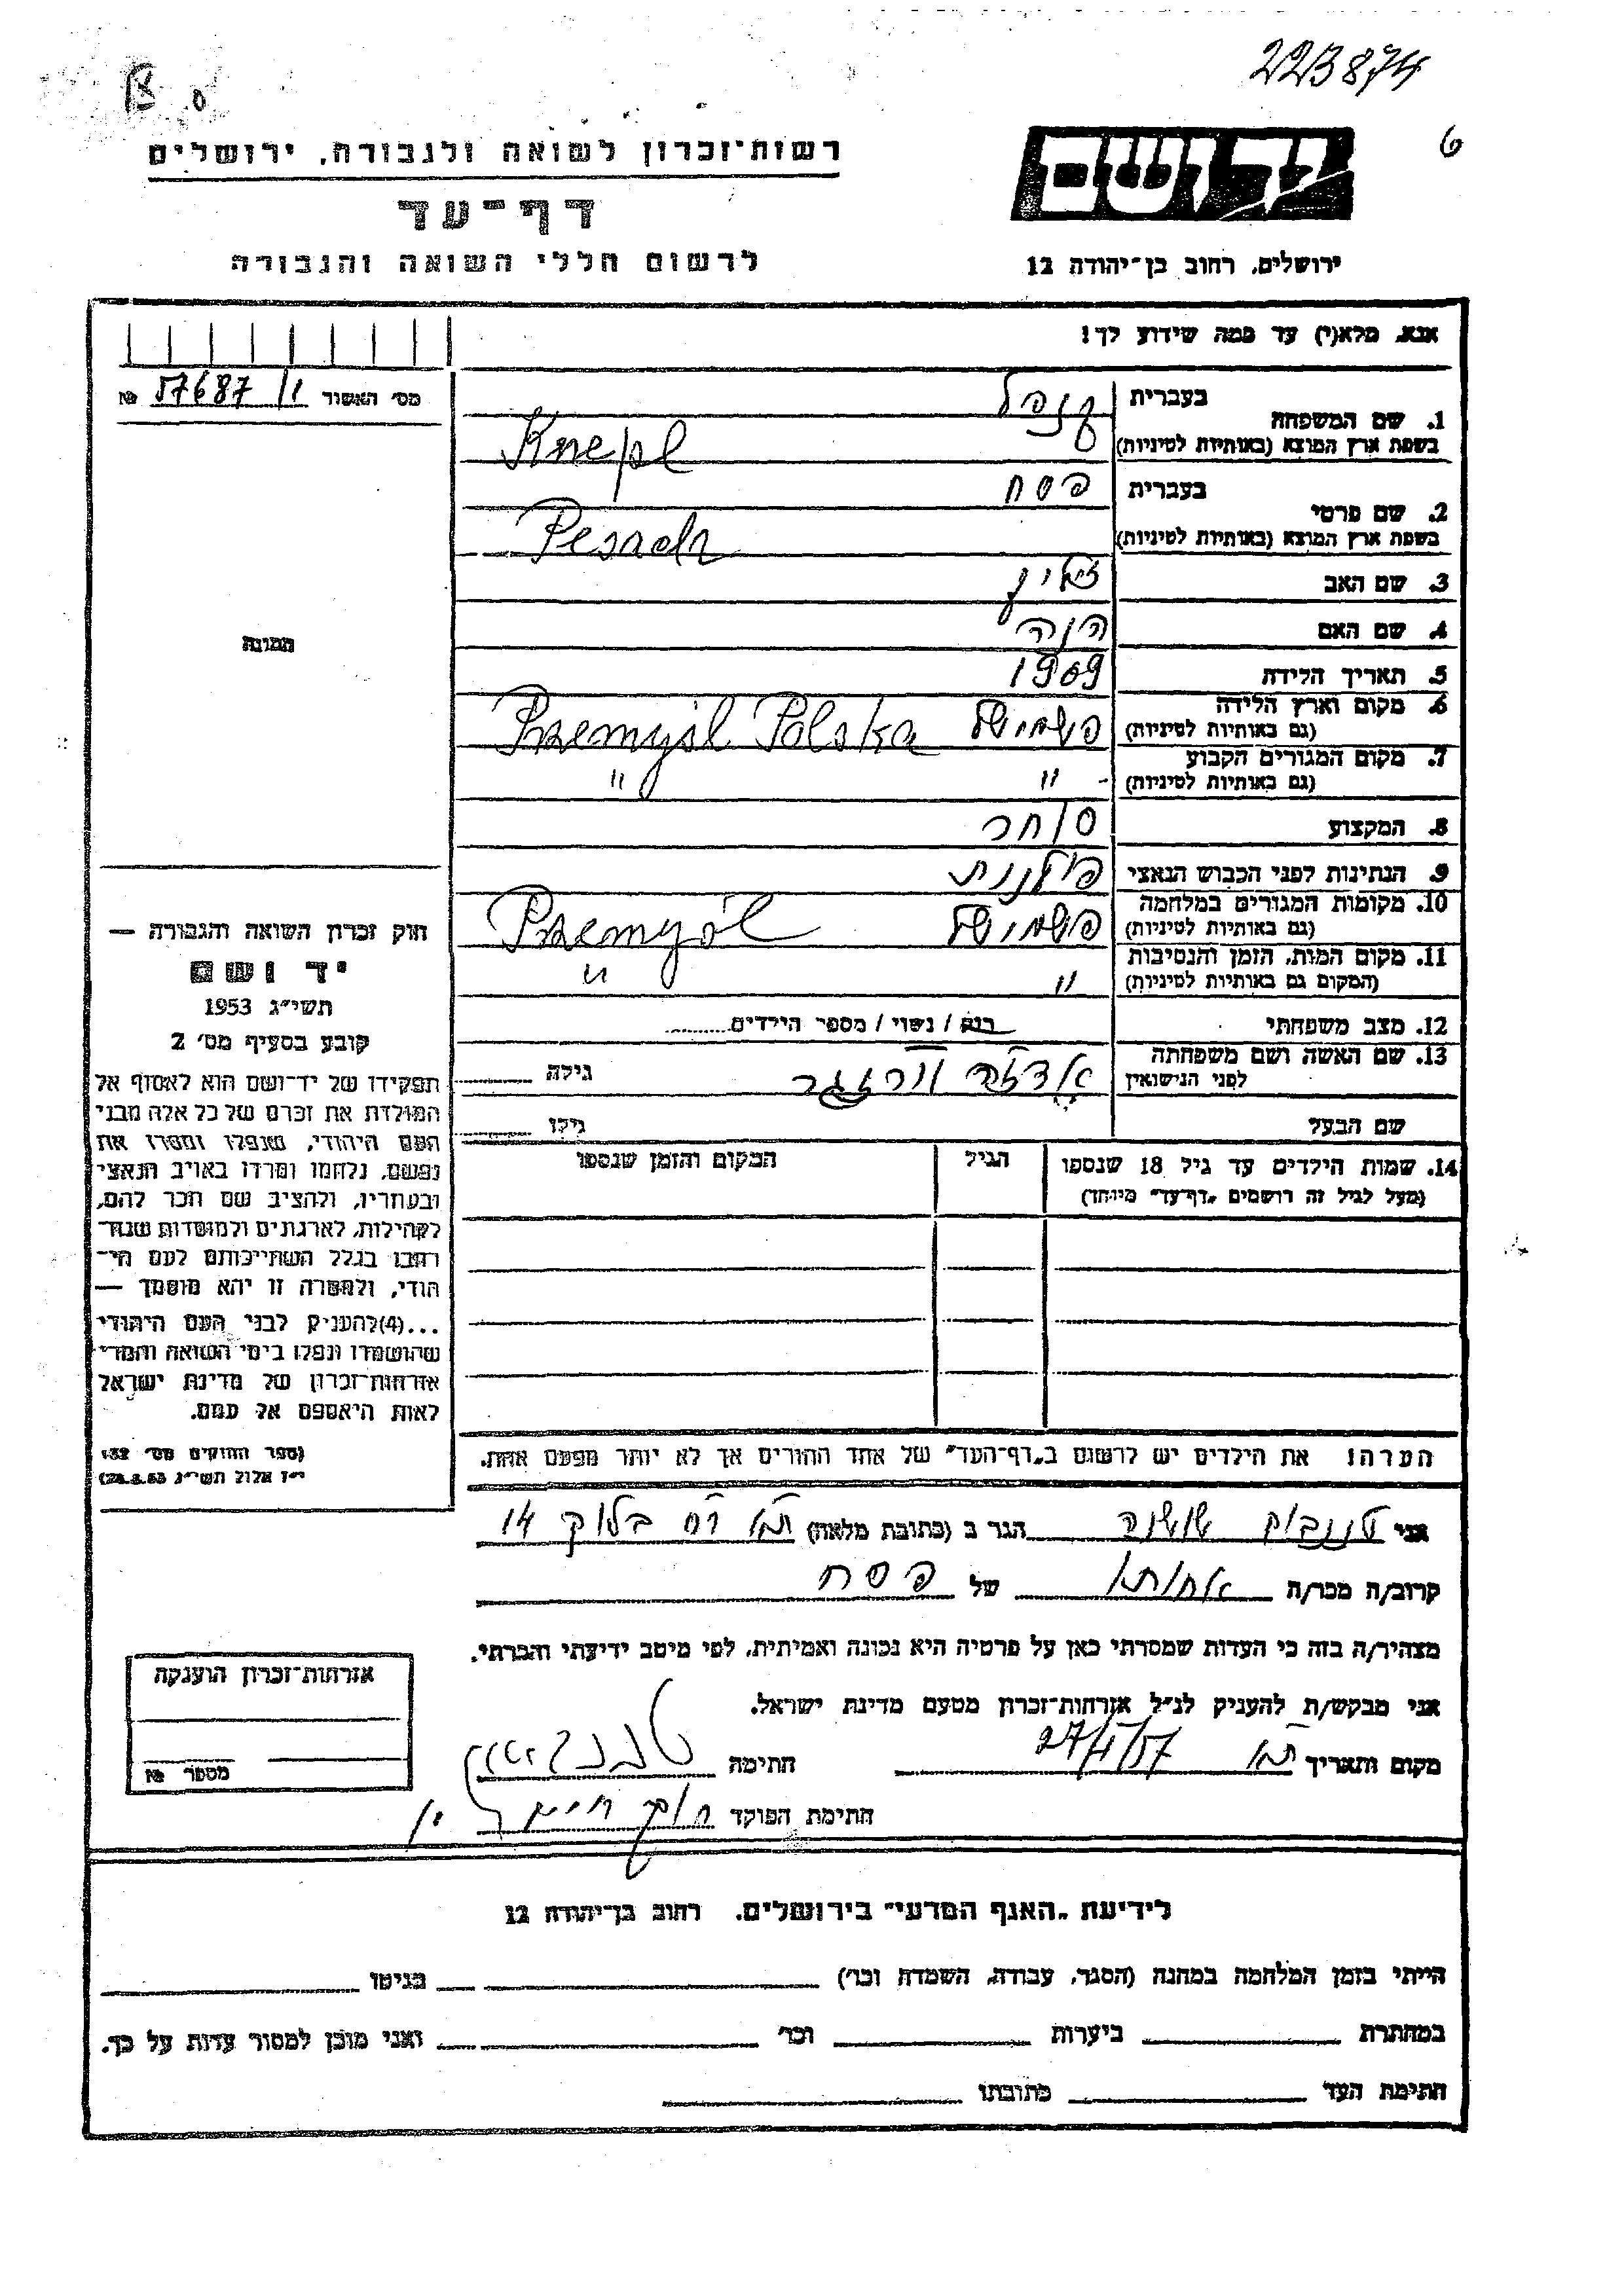 223874
6
רשות־זכרון לשואה ולגבורה, ירושלים
דף־עד
לרשום חללי השואה והגבורה
יד ושם
ירושלים, רחוב בן־יהודה 12
אנא, מלא(י) עד כמה שידוע לך!
מס׳ האשור 57687 /1 №
תמונה
1. שם המשפחה
בעברית קנפל
בשפת ארץ המוצא (באותיות לטיניות) Knepl
2. שם פרטי
בעברית פסח
בשפת ארץ המוצא (באותיות לטיניות) Pesach
3. שם האב זליג
4. שם האם חנה
5. תאריך הלידה 1909
6. מקום וארץ הלידה
(גם באותיות לטיניות) פשמישל Przemyśl Polska
7. מקום המגורים הקבוע
(גם באותיות לטיניות) " "
8. המקצוע סוחר
9. הנתינות לפני הכבוש הנאצי פולנית
10. מקומות המגורים במלחמה
(גם באותיות לטיניות) פשמישל Przemyśl
11. מקום המות, הזמן והנסיבות
(המקום גם באותיות לטיניות) " "
12. מצב משפחתי רווק / נשוי / מספר הילדים
13. שם האשה ושם משפחתה
לפני הנישואין
גילה
שם הבעל
גילו
14. שמות הילדים עד גיל 18 שנספו
(מעל לגיל זה רושמים „דף־עד” מיוחד)
הגיל
המקום והזמן שנספו
חוק זכרון השואה והגבורה —
יד ושם
תשי״ג 1953
קובע בסעיף מס׳ 2
תפקידו של יד־ושם הוא לאסוף אל
המולדת את זכרם של כל אלה מבני
העם היהודי, שנפלו ומסרו את
נפשם, נלחמו ומרדו באויב הנאצי
ובעוזריו, ולהציב שם וזכר להם,
לקהילות, לארגונים ולמוסדות שנח־
רבו בגלל השתייכותם לעם הי־
הודי, ולמטרה זו יהא מוסמך —
...(4) להעניק לבני העם היהודי
שהושמדו ונפלו בימי השואה והמרי
אזרחות־זכרון של מדינת ישראל
לאות היאספם אל עמם.
(ספר החוקים מס׳ 132
י״ז אלול תשי״ג 28.8.53)
הערה! את הילדים יש לרשום ב„דף־העד” של אחד ההורים אך לא יותר מפעם אחת.
אני טננבוים שושנה הגר ב (כתובת מלאה) בלוק 14
קרוב/ה מכר/ה אחותו של פסח
מצהיר/ה בזה כי העדות שמסרתי כאן על פרטיה היא נכונה ואמיתית, לפי מיטב ידיעתי והכרתי.
אני מבקש/ת להעניק לנ״ל אזרחות־זכרון מטעם מדינת ישראל.
מקום ותאריך 27/V/57 חתימה טננבוים
חתימת הפוקד
אזרחות־זכרון הוענקה
מספר №
לידיעת „האגף המדעי” בירושלים, רחוב בן־יהודה 12
הייתי בזמן המלחמה במחנה (הסגר, עבודה, השמדה וכו׳) בגיטו
במחתרת ביערות וכו׳ ואני מוכן למסור עדות על כך.
חתימת העד כתובתו